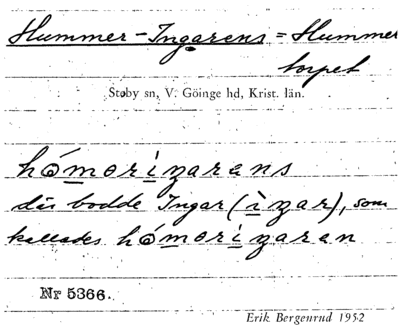 Hummer-Ingarens = Hummer
torpet
Stoby sn, V. Göinge hd, Krist. län.
hómɘriŋarans
där bodde Ingar (ìŋar), som
kallades hómɘriŋaran
Nr 5366.
Erik Bergenrud 1952